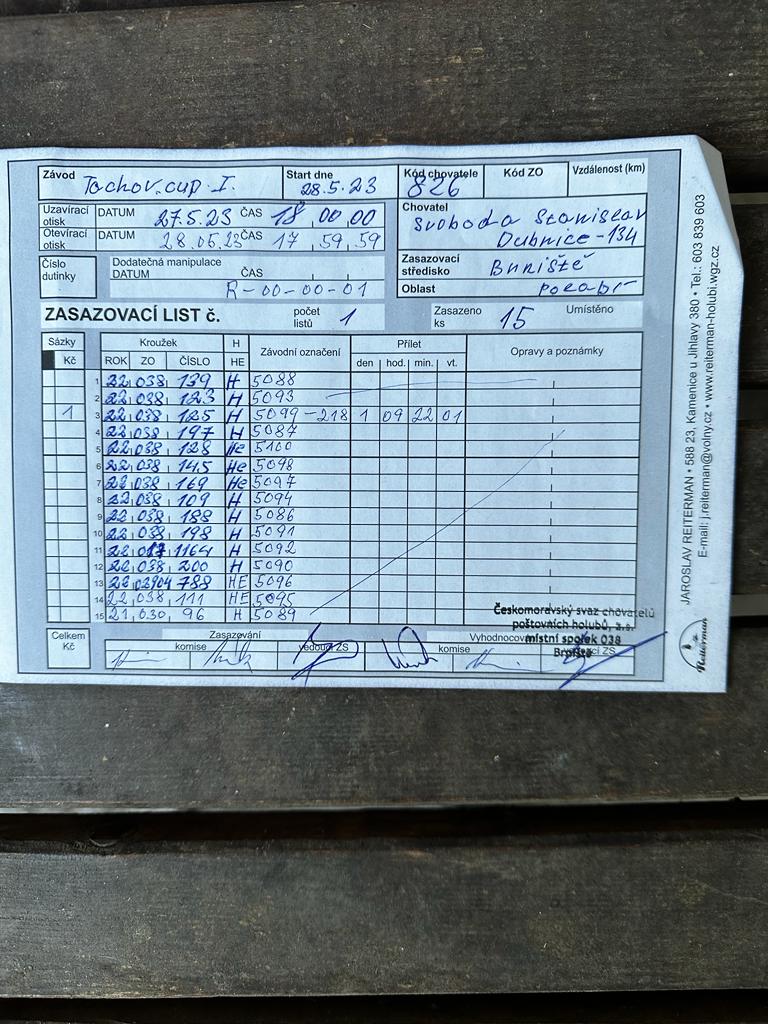 Závod Tachov.cup I. Start dne 28.5.23 Kód chovatele 826 Kód ZO Vzdálenost (km)
Uzavírací otisk DATUM 27.5.23 ČAS 18 00 00
Otevírací otisk DATUM 28.05.23 ČAS 17 59 59
Chovatel Svoboda Stanislav
Dubnice-134
Zasazovací středisko Brniště
Oblast
Číslo dutinky Dodatečná manipulace
DATUM ČAS
R-00-00-01
ZASAZOVACÍ LIST č. počet listů 1 Zasazeno ks 15 Umístěno
Sázky Kroužek H Závodní označení Přílet Opravy a poznámky
Kč ROK ZO ČÍSLO HE den hod. min. vt.
1 22 038 139 H 5088
2 22 038 123 H 5093
1 3 22 038 125 H 5099-218 1 09 22 01
4 22 038 197 H 5087
5 22 038 128 He 5100
6 22 038 145 He 5098
7 22 038 169 He 5097
8 22 038 109 H 5094
9 22 038 188 H 5086
10 22 038 198 H 5091
11 22 017 1164 H 5092
12 22 038 200 H 5090
13 22 02904 788 HE 5096
14 22 038 111 HE 5095
15 21 030 96 H 5089
Českomoravský svaz chovatelů
poštovních holubů, z.s.
místní spolek 038
Brniště
Celkem Kč Zasazování Vyhodnocov
komise vedoucí ZS komise
JAROSLAV REITERMAN • 588 23, Kamenice u Jihlavy 380 • Tel.: 603 839 603
E-mail: j.reiterman@volny.cz • www.reiterman-holubi.wgz.cz
Reiterman